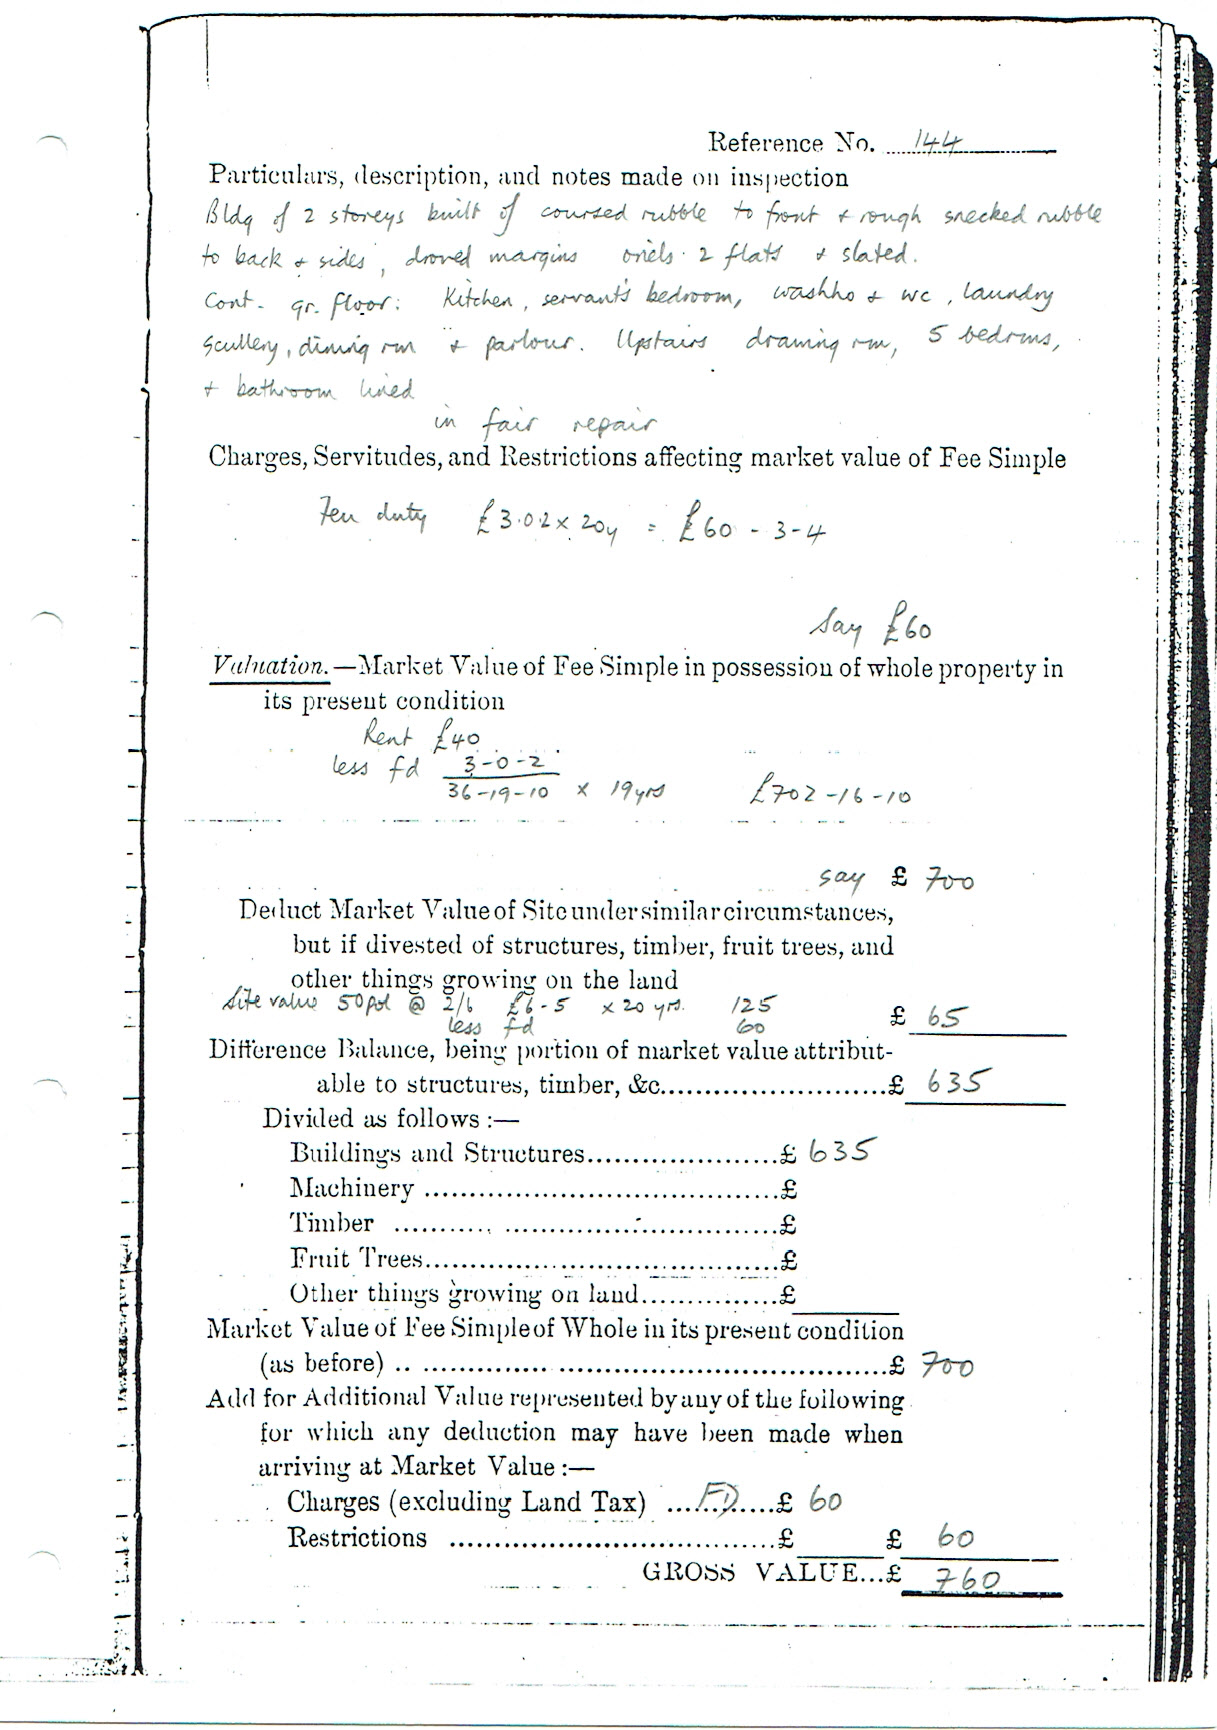 Reference No. 144
Particulars, description, and notes made on inspection
Bldg of 2 storeys built of coursed rubble to front & rough snecked rubble
to back & sides, droved margins oriels. 2 flats & slated.
Cont. gr. floor: Kitchen, servant's bedroom, washho & wc, laundry
scullery, dining rm & parlour. Upstairs drawing rm, 5 bedrms,
& bathroom lined
in fair repair
Charges, Servitudes, and Restrictions affecting market value of Fee Simple
Feu duty £3.0.2 x 20y = £60-3-4
say £60
Valuation.—Market Value of Fee Simple in possession of whole property in
its present condition
Rent £40
less fd 3-0-2
36-19-10 x 19yrs £702-16-10
say £ 700
Deduct Market Value of Site under similar circumstances,
but if divested of structures, timber, fruit trees, and
other things growing on the land
Site value 50pol @ 2/6 £6-5 x 20 yrs. 125
less fd 60 £ 65
Difference Balance, being portion of market value attribut-
able to structures, timber, &c.........................£ 635
Divided as follows :—
Buildings and Structures.....................£ 635
Machinery .......................................£
Timber ...........................................£
Fruit Trees.......................................£
Other things growing on land...............£
Market Value of Fee Simple of Whole in its present condition
(as before) .......................................................£ 700
Add for Additional Value represented by any of the following
for which any deduction may have been made when
arriving at Market Value :—
Charges (excluding Land Tax) ...FD.....£ 60
Restrictions ....................................£ £ 60
GROSS VALUE...£ 760